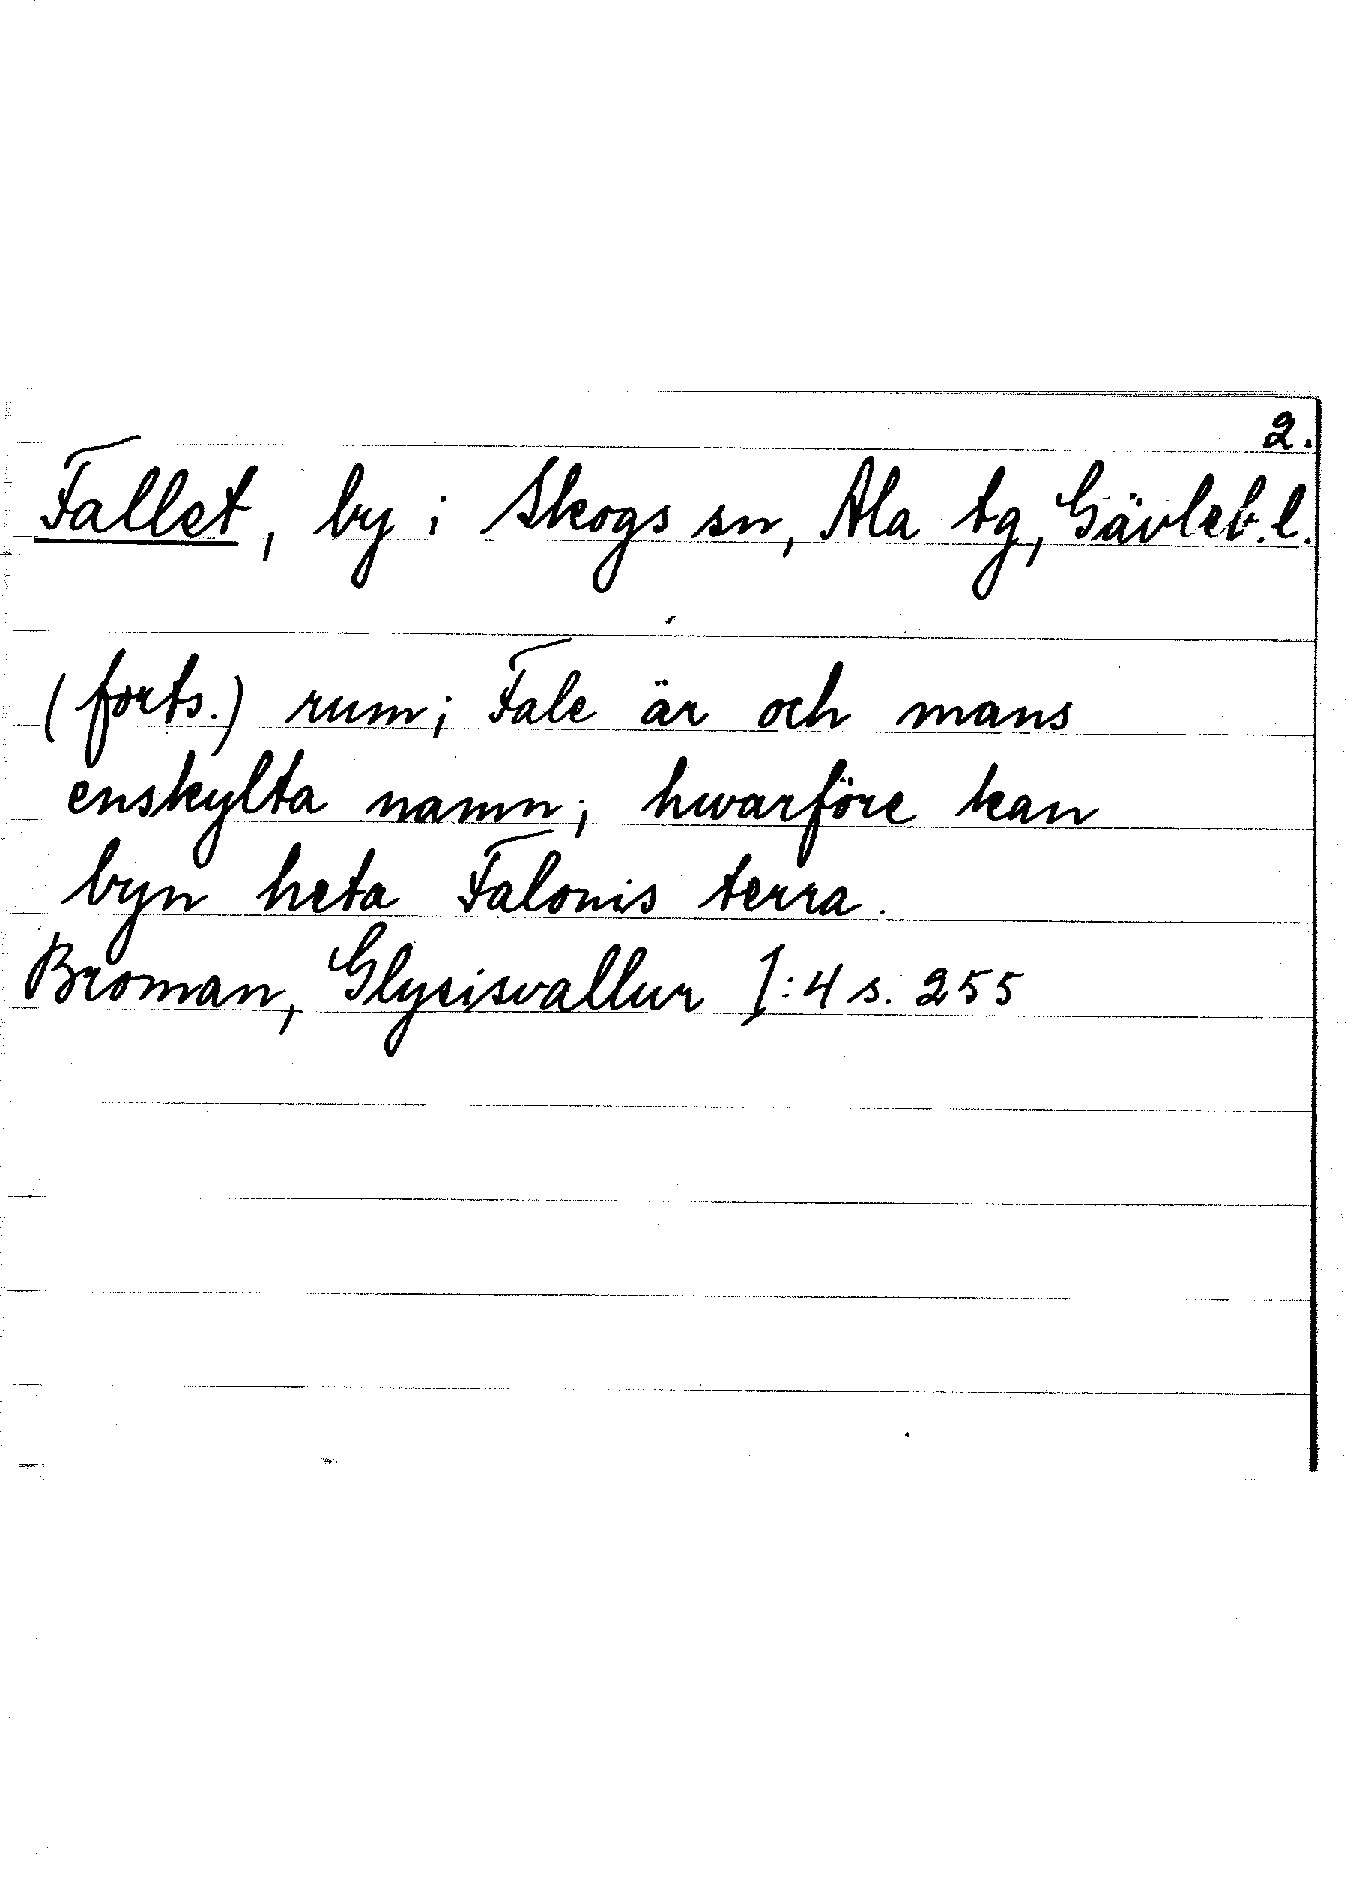 2.
Fallet, by i Skogs sn, Ala tg, Gävleb.l.
(forts.) rum; Fale är och mans
enskylta namn; hwarföre kan
byn heta Falonis terra.
Broman, Glysisvallur I:4 s. 255